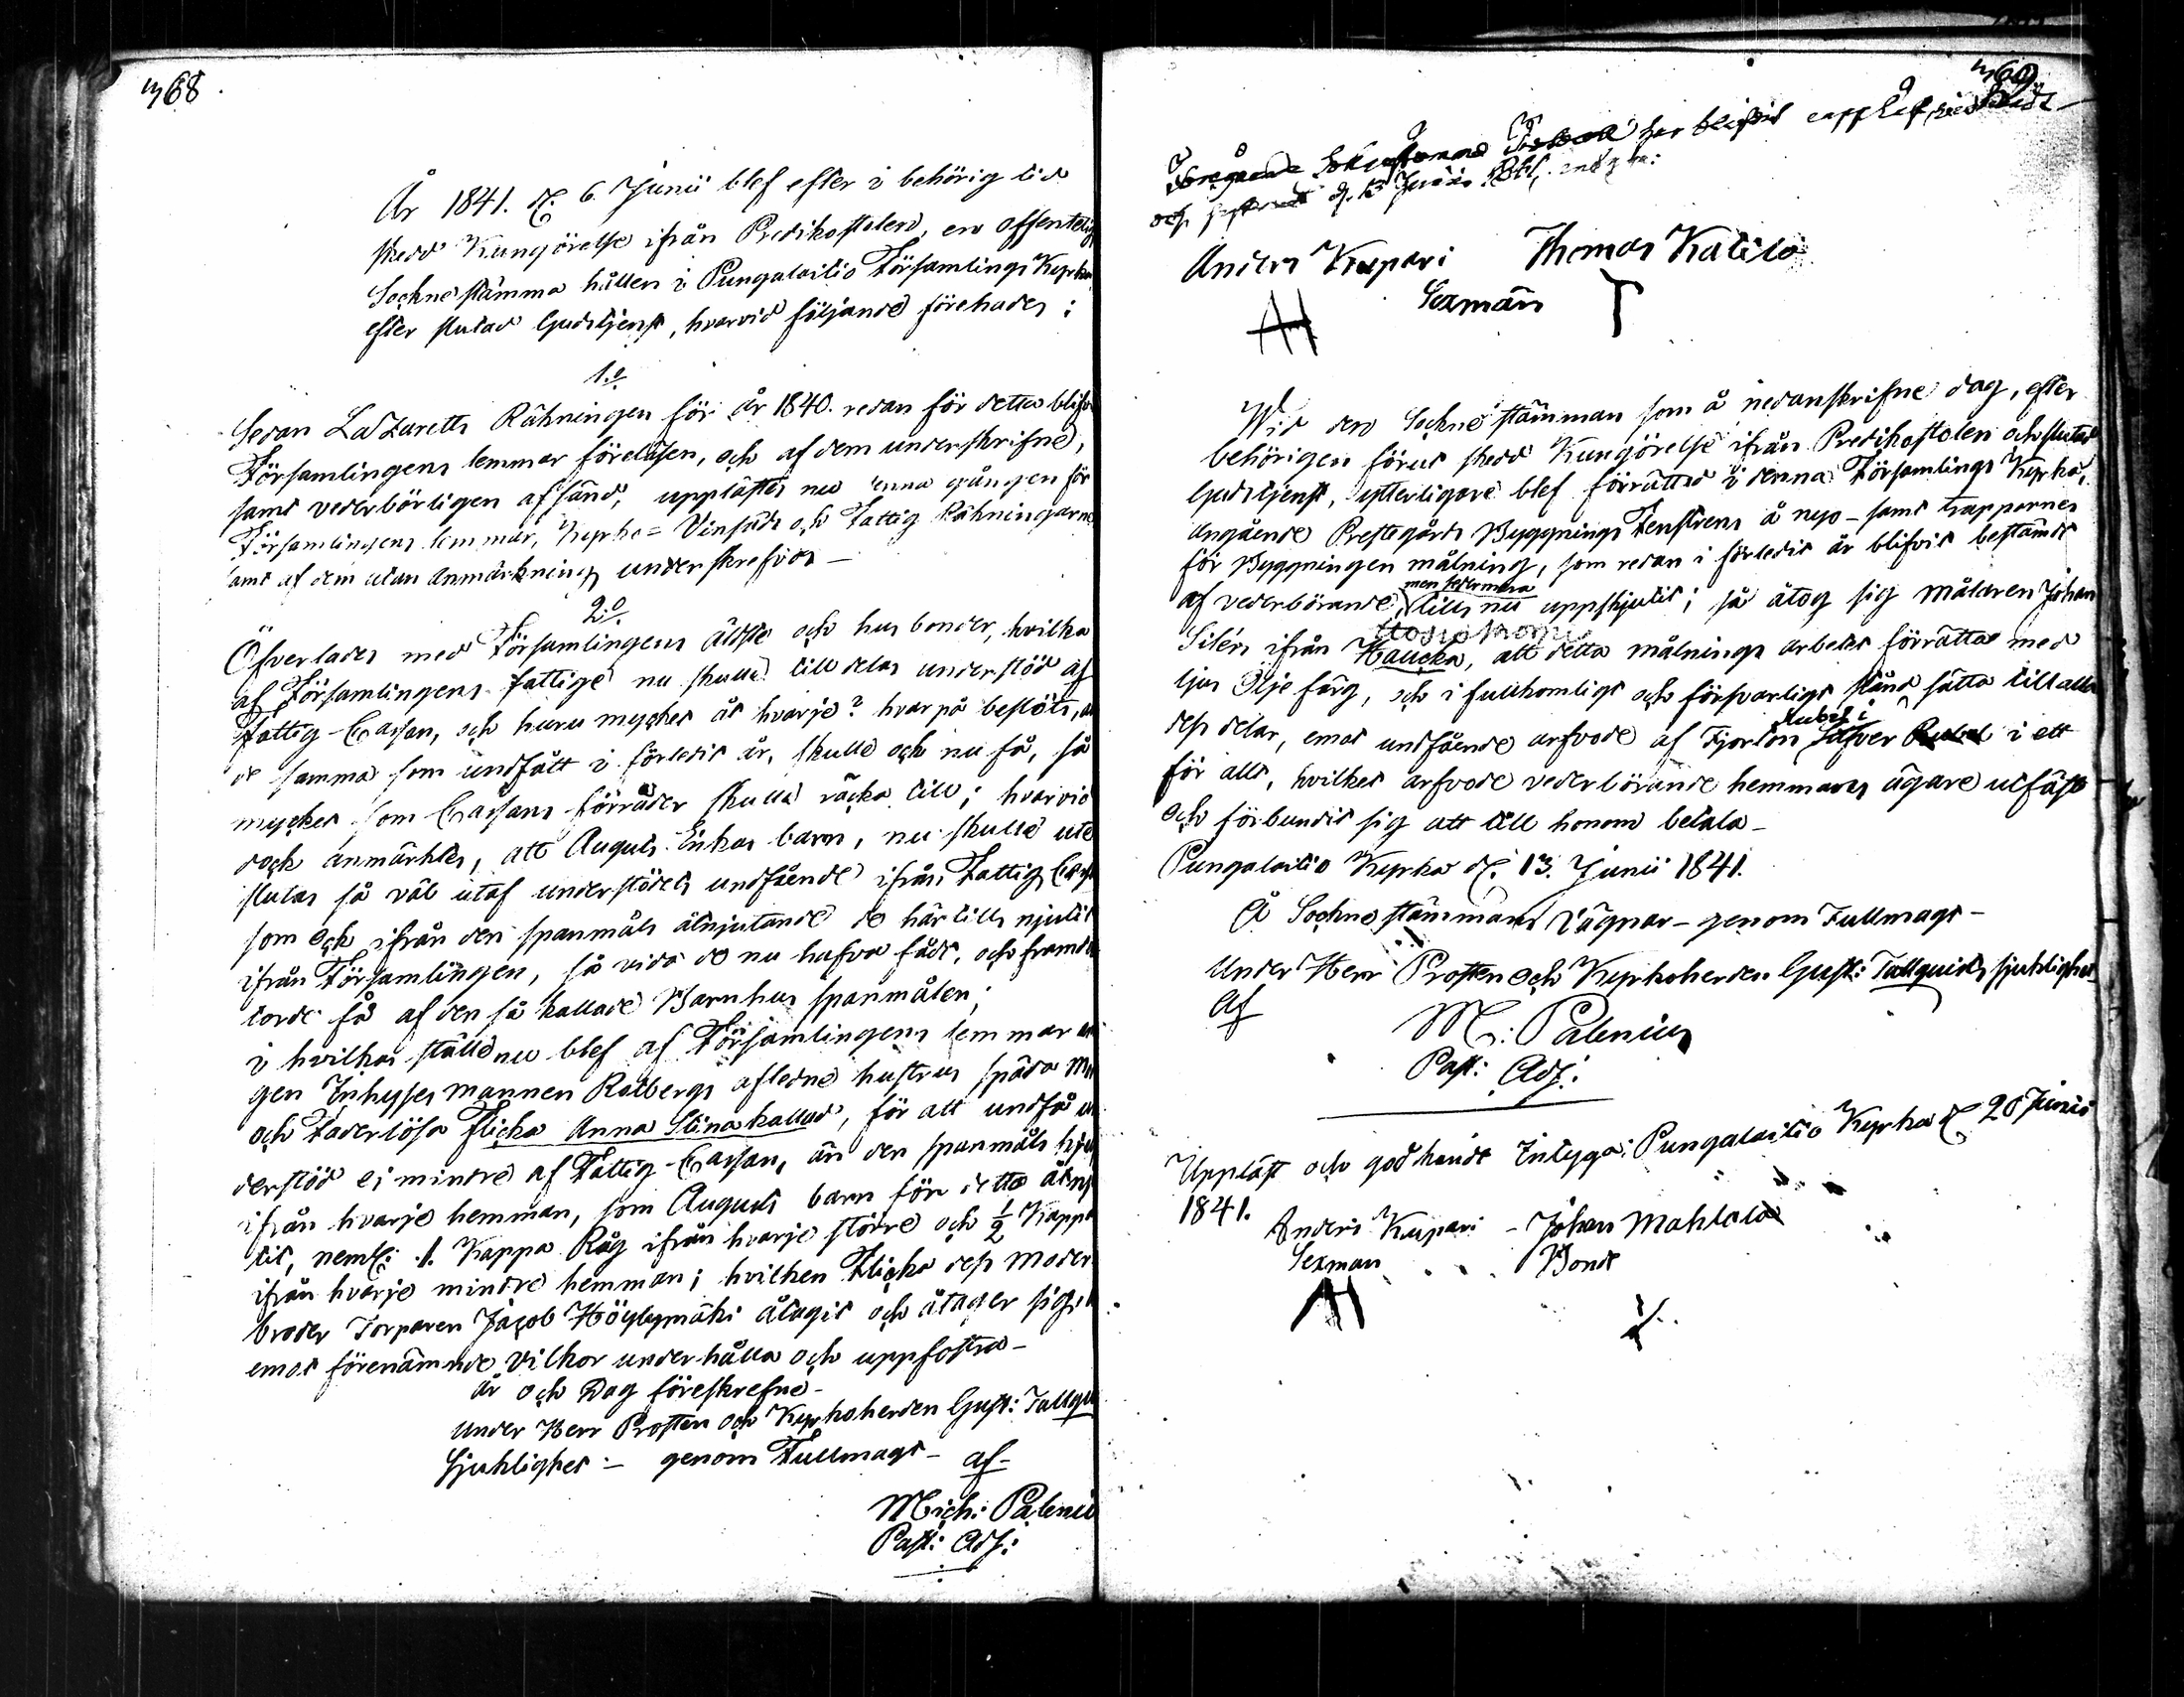 368
År 1841. d. 6. Junii blef efter i behörig tid
skedd Kungörelse ifrån Predikostolen, en offentelig
Sockne stämma hållen i Pungalaitio Församlings Kyrka
efter slutad Gudstjenst, hvarvid följande förehades:
1:o
Sedan Lazaretts Räkningen för år 1840. redan för detta blifv
Församlingens lemmar föreläsen, och af dem underskrifne,
samt vederbörligen afsänd, upplästes nu denna gången för
Församlingens lemmar, Kyrko= Vinsäds och Fattig Räkningarne
samt af dem utan anmärkning underskrefvos —
2:o
Öfverlades med Församlingens äldste och hus bonder, hvilka
af Församlingens fattige nu skulle till delas understöd af
Fattig-Cassan, och huru mycket åt hvarje? hvarpå beslöts, at
de samma som undfått i förledit år, skulle och nu få, så
mycket som Cassans förråder skulle räcka till; hvarvid
dock anmärktes, att Augusts Enkas barn, nu skulle ute
slutas så väl utaf understödets undfående ifrån Fattig Cass
som ock ifrån den spanmåls åtnjutande de här tills njutit
ifrån Församlingen, så vida de nu hafva fådt, och framde
torde få af den så kallade Barnhus spanmålen;
i hvilkas ställe nu blef af Församlingens lemmar an
gen Inhyses mannen Ratbergs afledne hustrus späda M
och Faderlösa Flicka Anna Stina kallad, för att undfå un
derstöd ei mindre af Fattig-Cassan, än den spanmåls hjel
ifrån hvarje hemman, som Augusts barn för detta åtnj
tit, neml: 1. Kappa Råg ifrån hvarje större och ½ Kappe
ifrån hvarje mindre hemman; hvilken Flicka dess Moder
broder Torparen Jacob Höylymäki åtagit och åtager sig
emot förenämnde Vilkor underhålla och uppfostra —
År och Dag föreskrefne —
Under Herr Prosten och Kyrkoherden Gust: Tallqui
Sjuklighet — genom Fullmagt — af —
Mich: Paleniu
Past: Adj:
369
Föregående Sockenstämma har blifvit uppläst
och d. 13 Junii 1841,
Anders Kupari Thomas Katila
Sexmän
AH T
Wid den Sockne stämman som å nedanskrifne dag, efter
behörigen förut skedd Kungörelse ifrån Predikostolen och slutad
Gudstjenst, ytterligare blef förrättad i denna Församlings Kyrka,
angående Prestegårds Byggnings Fenstrens å nyo — samt trappornes
för Byggningen målning, som redan i förledit år blifvit bestämdt
af vederbörande, men sedermera tills nu uppskjutit; så åtog sig målaren Johan
Silén ifrån Haucka, att detta målnings arbetet förrätta med
ljus Olje färg, och i fullkomligt och försvarligt stånd sätta till alla
dess delar, emot undfående arfvode af Fjorton Rubel i Silfver Rubel i ett
för allt, hvilket arfvode vederbörande hemmans ägare utfäst
och förbundit sig att till honom betala —
Pungalaitio Kyrka d. 13. Junii 1841.
Å Sockne stämmans vägnar — genom Fullmagt —
Under Herr Prosten och Kyrkoherden Gust: Tallquists sjuklighet
af
M: Palenius
Past: Adj:
Uppläst och godkändt Intyga; Pungalaitio Kyrka d 20 Junii
1841.
Anders Kupari — Johan Mahlala
Sexman Bonde
AH